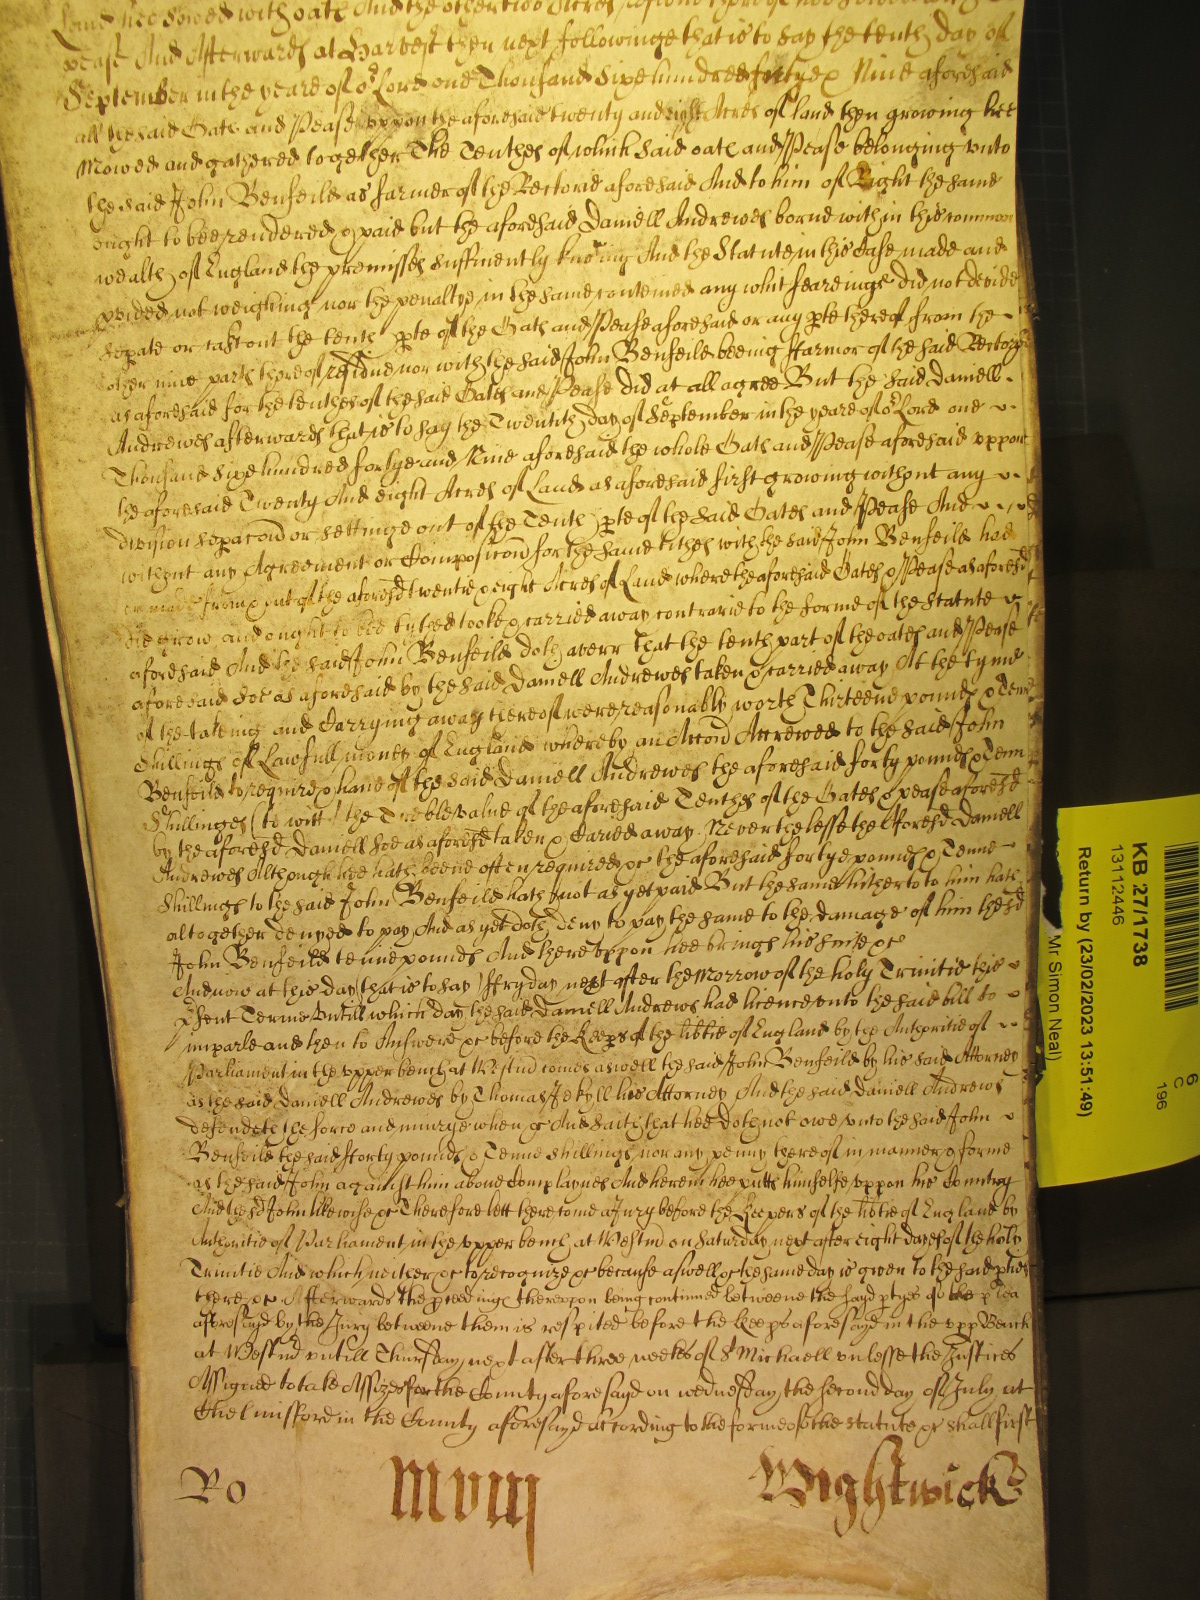 Land hee sowed with oate And the other two Acres
pease And Afterwards at Harvest then next followinge that is to say the tenth day of
September in the yeare of or Lord one Thousand Sixe hundred fortye & Nine aforesaid
all the said Oate and Pease uppon the aforesaid twenty and eight Acres of land then growing hee
Mowed and gathered together The Tenthes of which said oate and Pease belonging unto
the said John Benfeild as farmer of the Rectorie aforesaid And to him of Right the same
ought to bee rendered & paid but the aforesaid Daniell Andrewes borne with in this common
wealth of England the premisses sufficiently knowing And the Statute in this Case made and
pvided not weighing nor the penaltye in the same conteined any whit feareinge did not devide
sepate or cast out the tenth pte of the Oats and Pease aforesaid or any pte thereof from the
other nine parts thereof residue nor with the said John Benfeild beeing ffarmor of the said Rectorye
as aforesaid for the tenthes of the said Oates and Pease did at all agree But the said Daniell
Andrewes afterwards that is to say the Twentith day of September in the yeare of or Lord one
Thousand Sixe hundred fortye and Nine aforesaid the whole Oats and Pease aforesaid uppon
the aforesaid Twenty And eight Acres of Land as aforesaid first growing without any
division sepacon or settinge out of the Tenth pte of the said Oates and Pease And
without any Agreement or Composicon for the same tithes with the said John Benfeild had
or made from & out of the aforesd twentie & eight Acres of Land where the aforesaid Oates & Pease as aforesd
did grow and ought to bee tythed tooke & carried away contrarie to the forme of the Statute
aforesaid And the said John Benfeild doth averr that the tenth part of the oates and Pease
aforesaid soe as aforesaid by the said Daniell Andrewes taken & carried away At the tyme
of the takeing and Carrying away thereof were reasonably worth Thirteene pounds & Tenne
shillings of Lawfull money of England whereby an Accon Accrewed to the said John
Benfeild to require & have of the said Daniell Andrewes the aforesaid forty pounds & Tenn
Shillinges (to witt) the Treble value of the aforesaid Tenthes of the Oates & pease aforesd
by the aforesd Daniell soe as aforesd taken & Caried away Neverthelesse the aforesd Daniell
Andrewes Although hee hath beene often required &c the aforesaid fortye pounds & Tenne
shillings to the said John Benfeild hath not as yet paid But the same hitherto to him hath
altogether denyed to pay And as yet doth deny to pay the same to the damage of him the sd
John Benfeild tenne pounds And thereuppon hee brings his suite &c
And now at this day that is to say ffryday next after the Morrow of the holy Trinitie this
psent Terme Untill which day the said Daniell Andrews had licence unto the said bill to
imparle and then to Answere &c before the Keeps of the libtie of England by the Authoritie of
Parliament in the upper bench at Westmd comes aswell the said John Benfeild by his said Attorney
as the said Daniell Andrewes by Thomas Jekyll his Attorney And the said Daniell Andrews
defendeth the force and iniurye when &c And saith that hee doth not owe unto the said John
Benfeild the said fforty pounds & Tenne shillings nor any penny thereof in manner & forme
as the said John against him above Complaynes And herein hee putts himselfe uppon his Country
And the sd John likewise &c Therefore lett there come a Jury before the Keepers of the libtie of England by
Authoritie of Parliament in the upper bench at Westmd on Saturday next after eight dayes of the holy
Trinitie And which neither &c to recognize &c because aswell &c the same day is given to the said pties
there &c Afterwards the pceedings thereuppon being continued betweene the sayd ptyes of the plea
aforesayd by the Jury betweene them is respited before the Keeps aforesayd in the upp Bench
at Westmd untill Thursday next after three weekes of St Michaell unlesse the Justices
Assigned to take Assizes for the County aforesayd on wednesday the second day of July at
Chelmisford in the County aforesayd according to the forme of the statute &c shall first
Ro
Mviij
Wightwick
KB 27/1738
13112446
Return by (23/02/2023 13:51:49)
Mr Simon Neal)
6
C
196